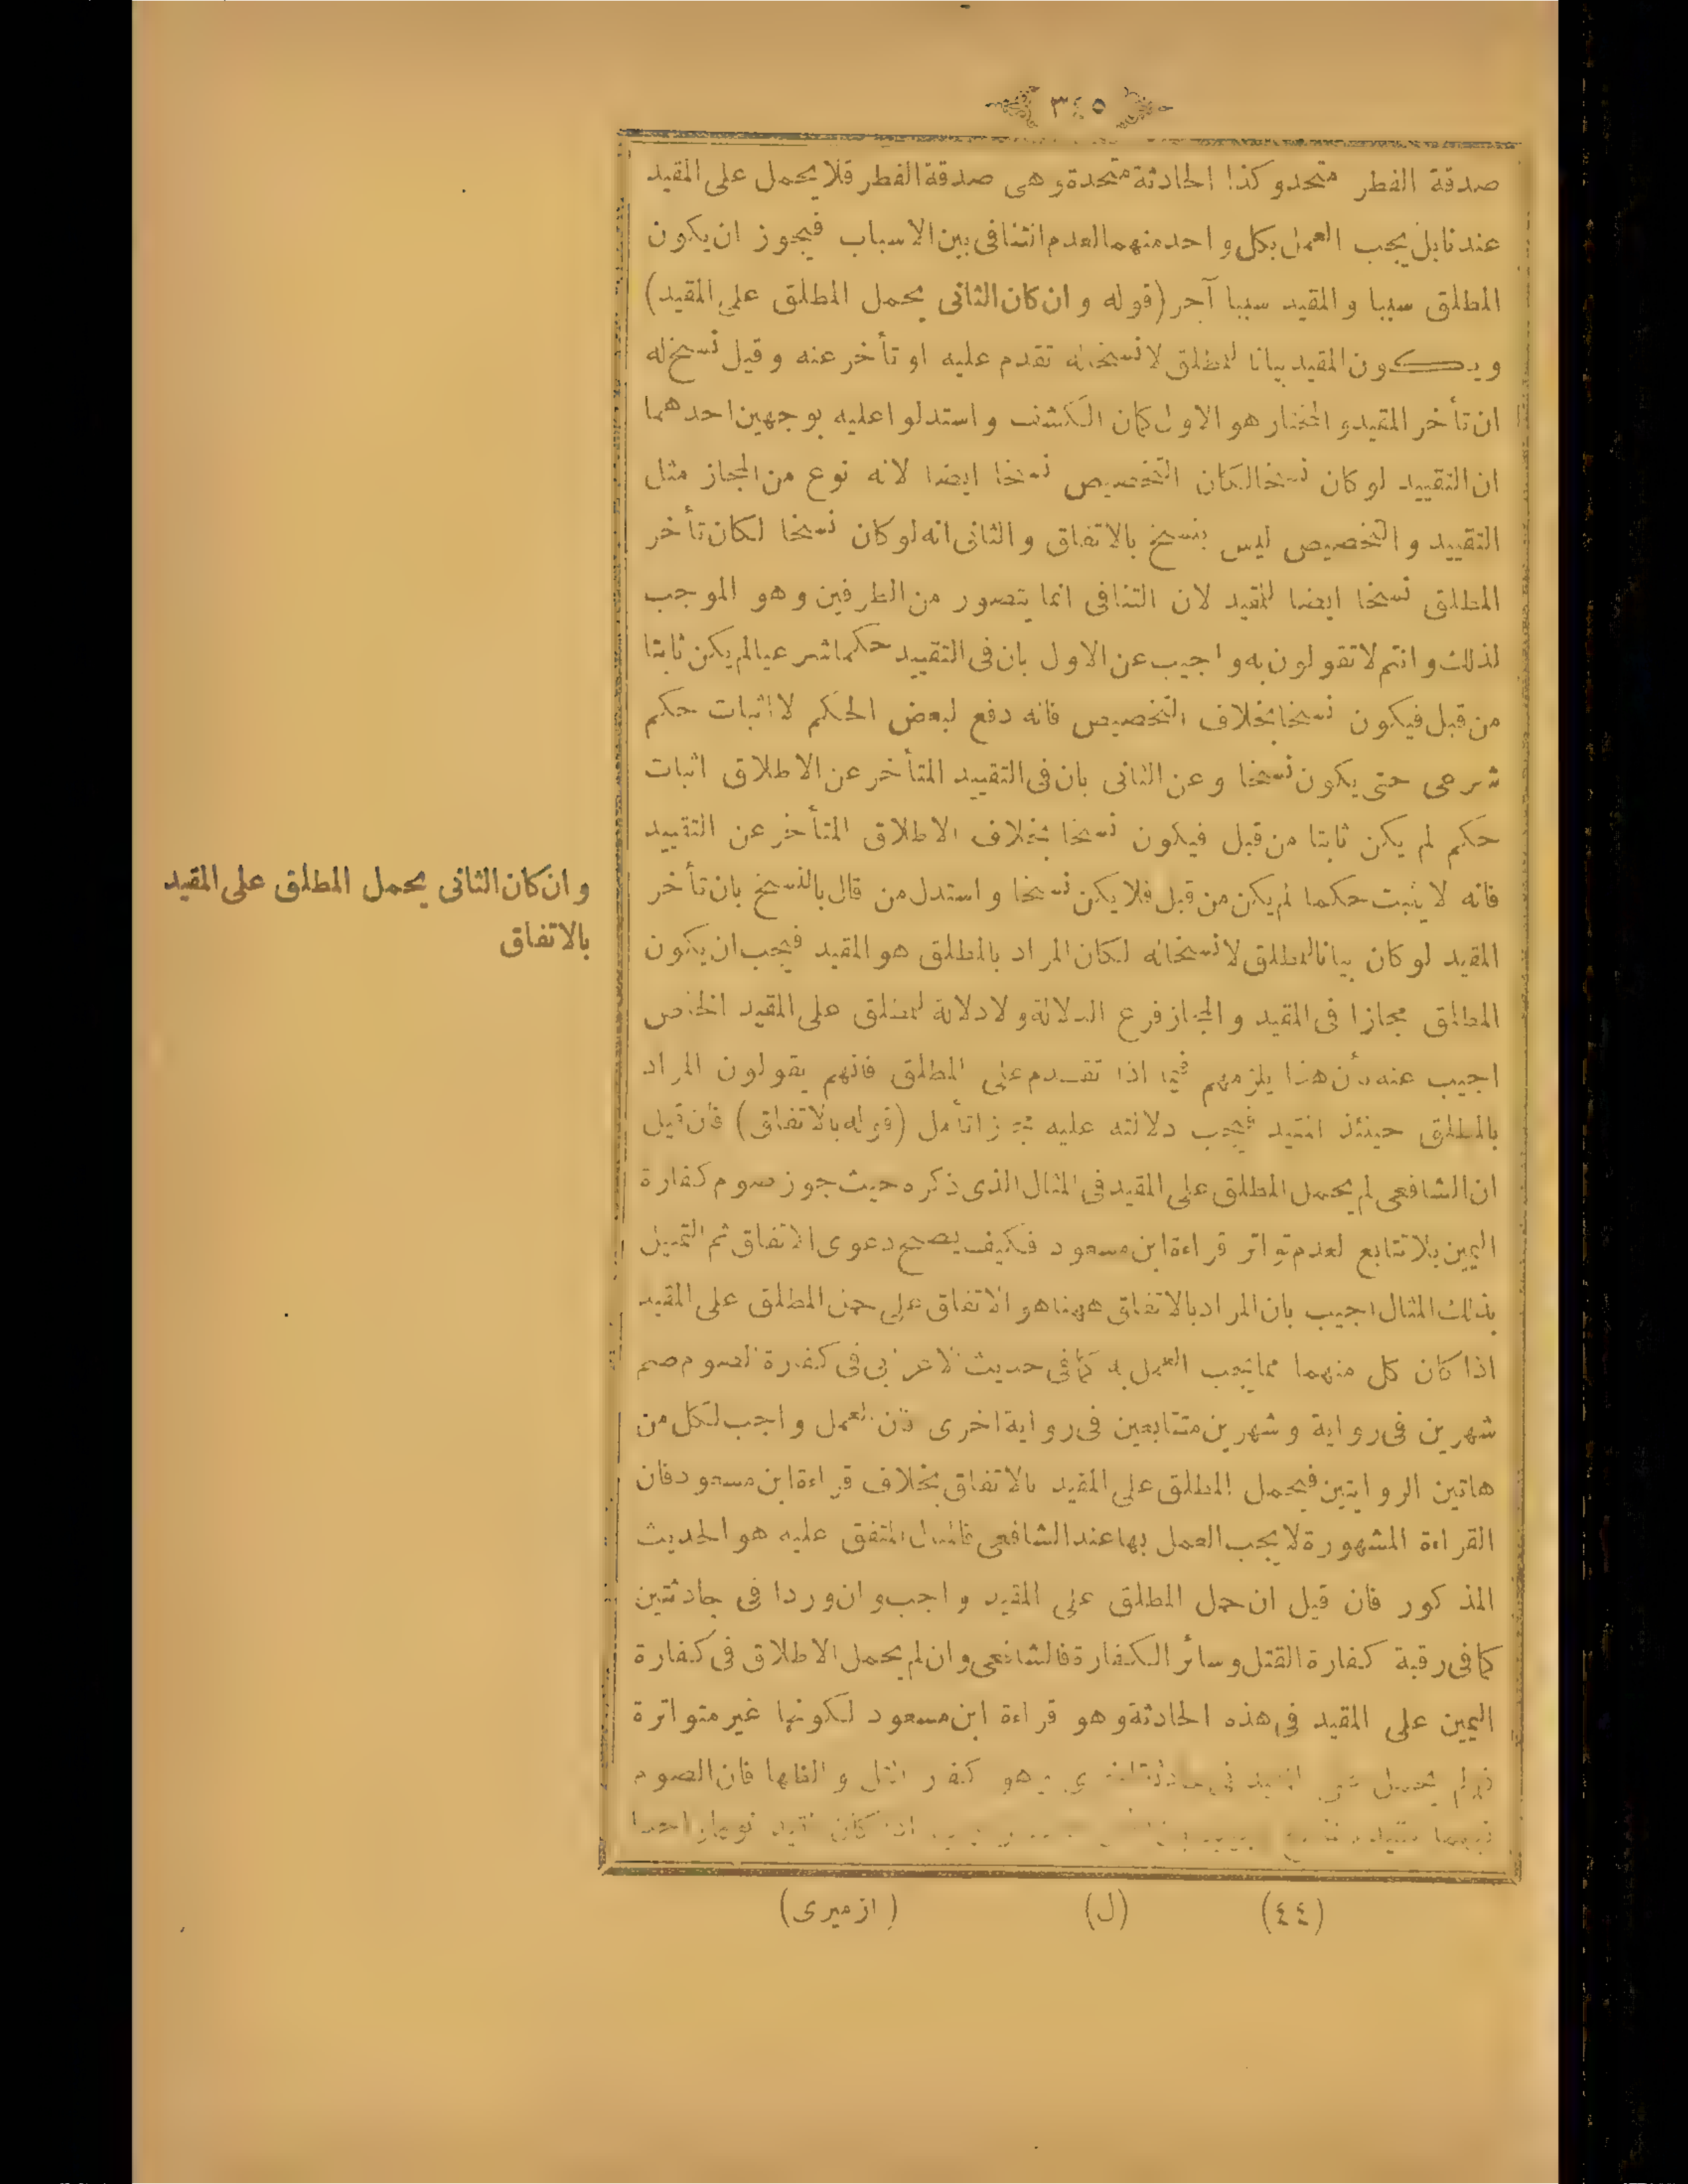 ٣٤٥
صدقة الفطر متحد وكذا الحادثة متحدة وهى صدقة الفطر فلا يحمل على المقيد
عندنا بل يجب العمل بكل واحد منهما لعدم التنافى بين الاسباب فيجوز ان يكون
المطلق سببا والمقيد سببا آخر (قوله وان كان الثانى يحمل المطلق على المقيد)
ويكون المقيد بيانا للمطلق لا نسخا له تقدم عليه او تأخر عنه وقيل نسخ له
ان تأخر المقيد والمختار هو الاول كما فى الكشف واستدلوا عليه بوجهين احدهما
ان التقييد لو كان نسخا لكان التخصيص نسخا ايضا لانه نوع من المجاز مثل
التقييد والتخصيص ليس بنسخ بالاتفاق والثانى انه لو كان نسخا لكان تأخر
المطلق نسخا ايضا للمقيد لان التنافى انما يتصور من الطرفين وهو الموجب
لذلك وانتم لا تقولون به واجيب عن الاول بان فى التقييد حكما شرعيا لم يكن ثابتا
من قبل فيكون نسخا بخلاف التخصيص فانه دفع لبعض الحكم لا اثبات حكم
شرعى حتى يكون نسخا وعن الثانى بان فى التقييد المتأخر عن الاطلاق اثبات
حكم لم يكن ثابتا من قبل فيكون نسخا بخلاف الاطلاق المتأخر عن التقييد
فانه لا يثبت حكما لم يكن من قبل فلا يكن نسخا واستدل من قال بالنسخ بان تأخر
المقيد لو كان بيانا للمطلق لا نسخا له لكان المراد بالمطلق هو المقيد فيجب ان يكون
المطلق مجازا فى المقيد والمجاز فرع الدلالة ولا دلالة للمطلق على المقيد الخاص
اجيب عنه بأن هذا يلزمهم فيما اذا تقدم على المطلق فانهم يقولون المراد
بالمطلق حينئذ المقيد فيجب دلالته عليه مجازا تأمل (قوله بالاتفاق) فان قيل
ان الشافعى لم يحمل المطلق على المقيد فى المثال الذى ذكره حيث جوز صوم كفارة
اليمين بلا تتابع لعدم تواتر قراءة ابن مسعود فكيف يصح دعوى الاتفاق ثم التمثيل
بذلك المثال اجيب بان المراد بالاتفاق ههنا هو الاتفاق على حمل المطلق على المقيد
اذا كان كل منهما مما يجب العمل به كما فى حديث الاعرابى فى كفارة الصوم صم
شهرين فى رواية وشهرين متتابعين فى رواية اخرى فان العمل واجب لكل من
هاتين الروايتين فيحمل المطلق على المقيد بالاتفاق بخلاف قراءة ابن مسعود فان
القراءة المشهورة لا يجب العمل بها عند الشافعى فالمثال المتفق عليه هو الحديث
المذكور فان قيل ان حمل المطلق على المقيد واجب وان وردا فى حادثتين
كما فى رقبة كفارة القتل وسائر الكفارة فالشافعى وان لم يحمل الاطلاق فى كفارة
اليمين على المقيد فى هذه الحادثة وهو قراءة ابن مسعود لكونها غير متواترة
وهو والظهار فان الصوم
وان كان الثانى يحمل المطلق على المقيد
بالاتفاق
(٤٤) (ل) (ازميرى)